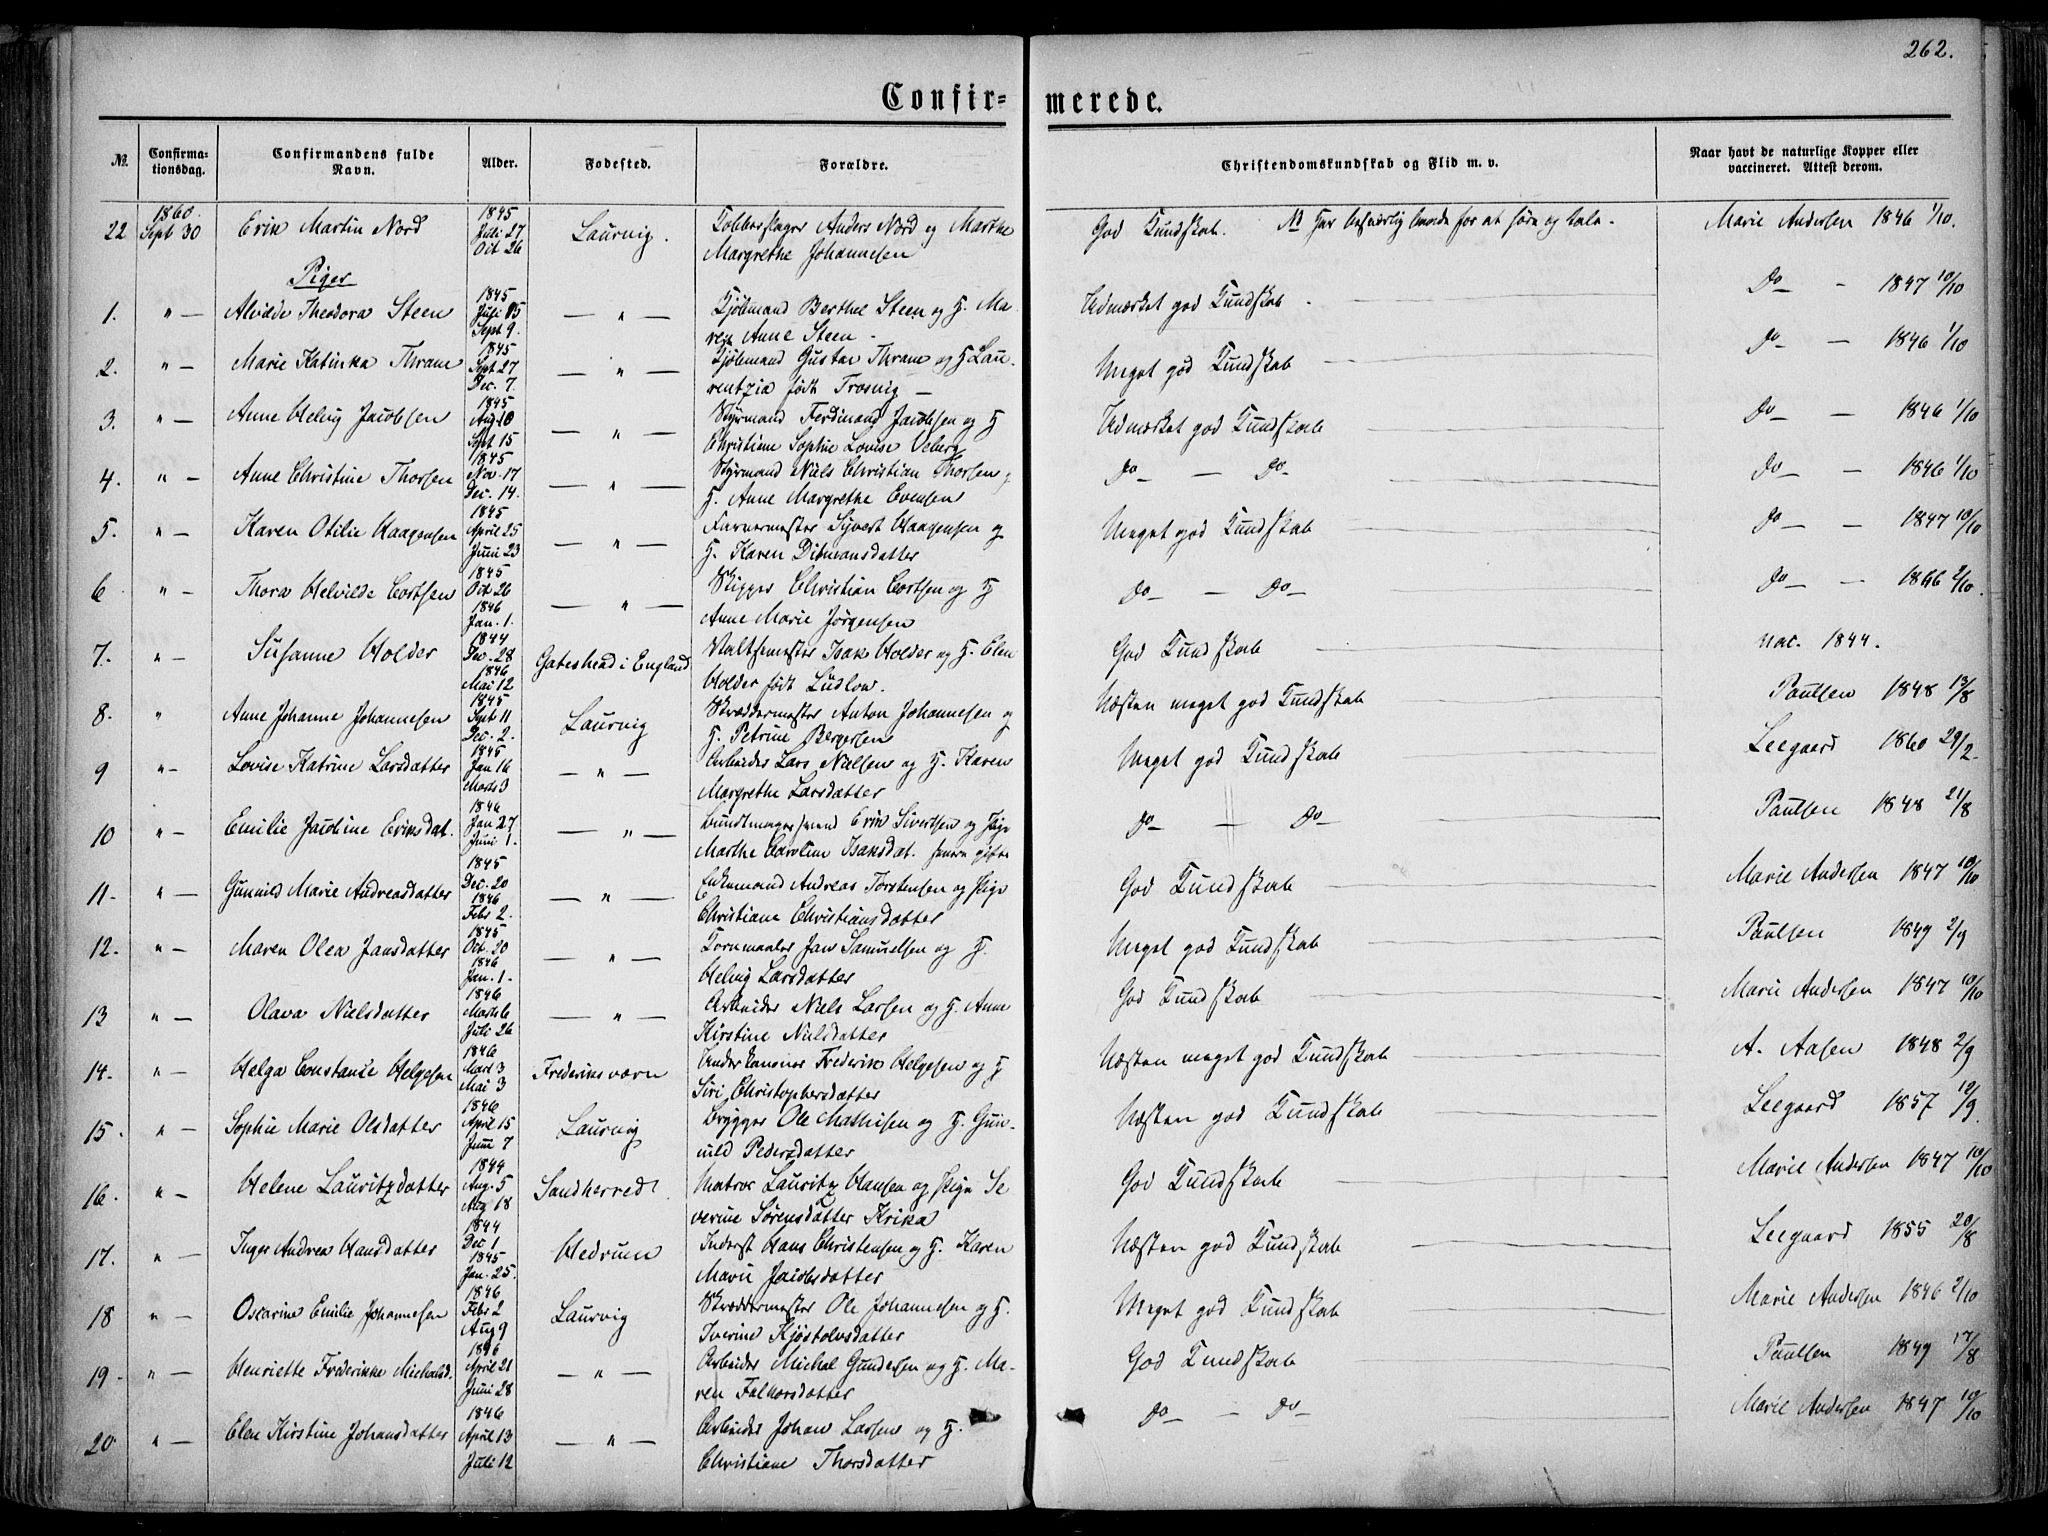 262.
Confirmerede.
No. Confirmationsdag. Confirmandens fulde Navn. Alder. Fødested. Forældre. Christendomskundskab og Flid m. v. Naar havt de naturlige Kopper eller vaccineret. Attest derom.
22 1860. Sept 30 Erik Martin Nord 1845 Juli 27 Oct 26 Laurvig. Kobberslager Anders Nord og Marthe God Kundskab. NB Har besværlig for at høre og tale. Marie Andersen 1846 1/10.
Margrethe Johannesen
Piger
1. " — Alvilde Theodora Steen 1845 Juli 15 Sept 9. — " — Kjøbmand Berthel Steen og H. Ma- Udmærket god Kundskab. Do — - 1847 10/10
ren Anne Steen -
2. " — Marie Katinka Thrane 1845 Sept 27 Dec. 7. — " — Kjøbmand Gustav Thrane og H. Lau- Meget god Kundskab Do — - 1846 1/10
rentzia født Trosvig —
3. " — Anne Helvig Jacobsen 1845 Aug 10 Sept 15 — " — Styrmand Ferdinand Jacobsen og H Udmærket god Kundskab Do — - 1846 1/10
Christiane Sophie Lovise Veberg
4. " — Anne Christine Thorsen 1845 Nov. 17 Dec. 14. — " — Styrmand Niels Christian Thorsen og Do — - Do — Do — - 1846 1/10
H. Anne Margrethe Evensen
5. " — Karen Otilie Haagensen 1845 April 25 Juni 23 — " — Farvermester Syvert Haagensen og Meget god Kundskab Do — - 1847 10/10
H. Karen Ditmansdatter
6 " — Thora Helvilde Cortsen 1845 Oct 26 1846 Jan. 1. — " — Skipper Christian Cortsen og H Do — - Do — Do — - 1846 2/10.
Anne Marie Jørgensen
7. " — Susanne Holder 1844 Dec. 28 1846 Mai 12 Gateshead i England Isak Holder og H. Elen God Kundskab vac. 1844.
Holder født Ludlow.
8. " Anne Johanne Johannesen 1845 Sept 11 Dec. 2. Laurvig Skræddermester Anton Johannesen og Næsten meget god Kundskab Paulsen 1848 13/8
H. Petrine Bergersen
9 " — Lovise Katrine Larsdatter 1845 Jan 16 Marts 3 — " — Arbeider Lars Nielsen og H. Karen Meget god Kundskab Leegaard 1860 29/2.
Margrethe Larsdatter
10 " — Emilie Jacobine Eriksdat. 1846 Jan 27 Juni 1. — " — Erik Sivertsen og Pige Do — - Do — Paulsen 1848 21/8
Marthe Caroline Isaksdat. senere gifte
11. " — Gunnild Marie Andreasdatter 1845 Dec. 20 1846 Febr 2. — " — Enkemand Andreas Torstensen og Pige God Kundskab Marie Andersen 1847 10/10
Christiane Christiansdatter
12. " — Maren Olea Jansdatter 1845 Oct. 20 1846 Jan. 1. — " — Kornmaaler Jan Samuelsen og H. Meget god Kundskab Paulsen 1849 2/9
Helvig Larsdatter
13 " — Olava Nielsdatter 1846 Marts 6 Juli 26 — " — Arbeider Niels Larsen og H. Anne God Kundskab Marie Andersen 1847 10/10
Kirstine Nielsdatter
14. " — Helga Constanse Helgesen 1846 Mart 3 Mai 3 Frederiksværn Underkanoner Frederik Helgesen og H Næsten meget god Kundskab A. Aasen 1848 2/9
Siri Christophersdatter
15. " — Sophie Marie Olsdatter 1846 April 15 Juni 7 Laurvig Brygger Ole Mathisen og H. Gun- Næsten god Kundskab Leegaard 1857 10/9.
nild Pedersdatter
16. " — Helene Lauritzdatter 1844 Aug. 5 Aug 18 Sandherred Matros Lauritz Hansen og Pige Se God Kundskab Marie Andersen 1847 10/10
verine Sørensdatter Krika
17. " — Inger Andrea Hansdatter 1844 Dec 1. 1845 Jan. 25. Hedrum Inderst Hans Christensen og H. Karen Næsten god Kundskab Leegaard 1855 20/8
Marie Jacobsdatter
18 " — Oscarine Emilie Johannesen 1846 Febr 2 Aug 9 Laurvig Skræddermester Ole Johannesen og H. Meget god Kundskab Marie Andersen 1846 2/10
Iverine Kjøstolvsdatter
19 - " — Henriette Frederikke Michalsd. 1846 April 21 Juni 28 — " — Arbeider Michal Gundersen og H. Ma- God Kundskab Paulsen 1849 17/8
ren Falkorsdatter
20 " — Elen Kirstine Johansdatter 1846 April 13 Juli 12 — " — Arbeider Johan Larsen og H. Do — - Do — Marie Andersen 1847 10/10
Christiane Thorsdatter